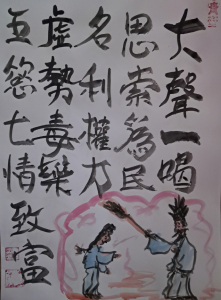 大聲一喝
思索為民
名利權力
虛勢毒藥
五慾七情致富